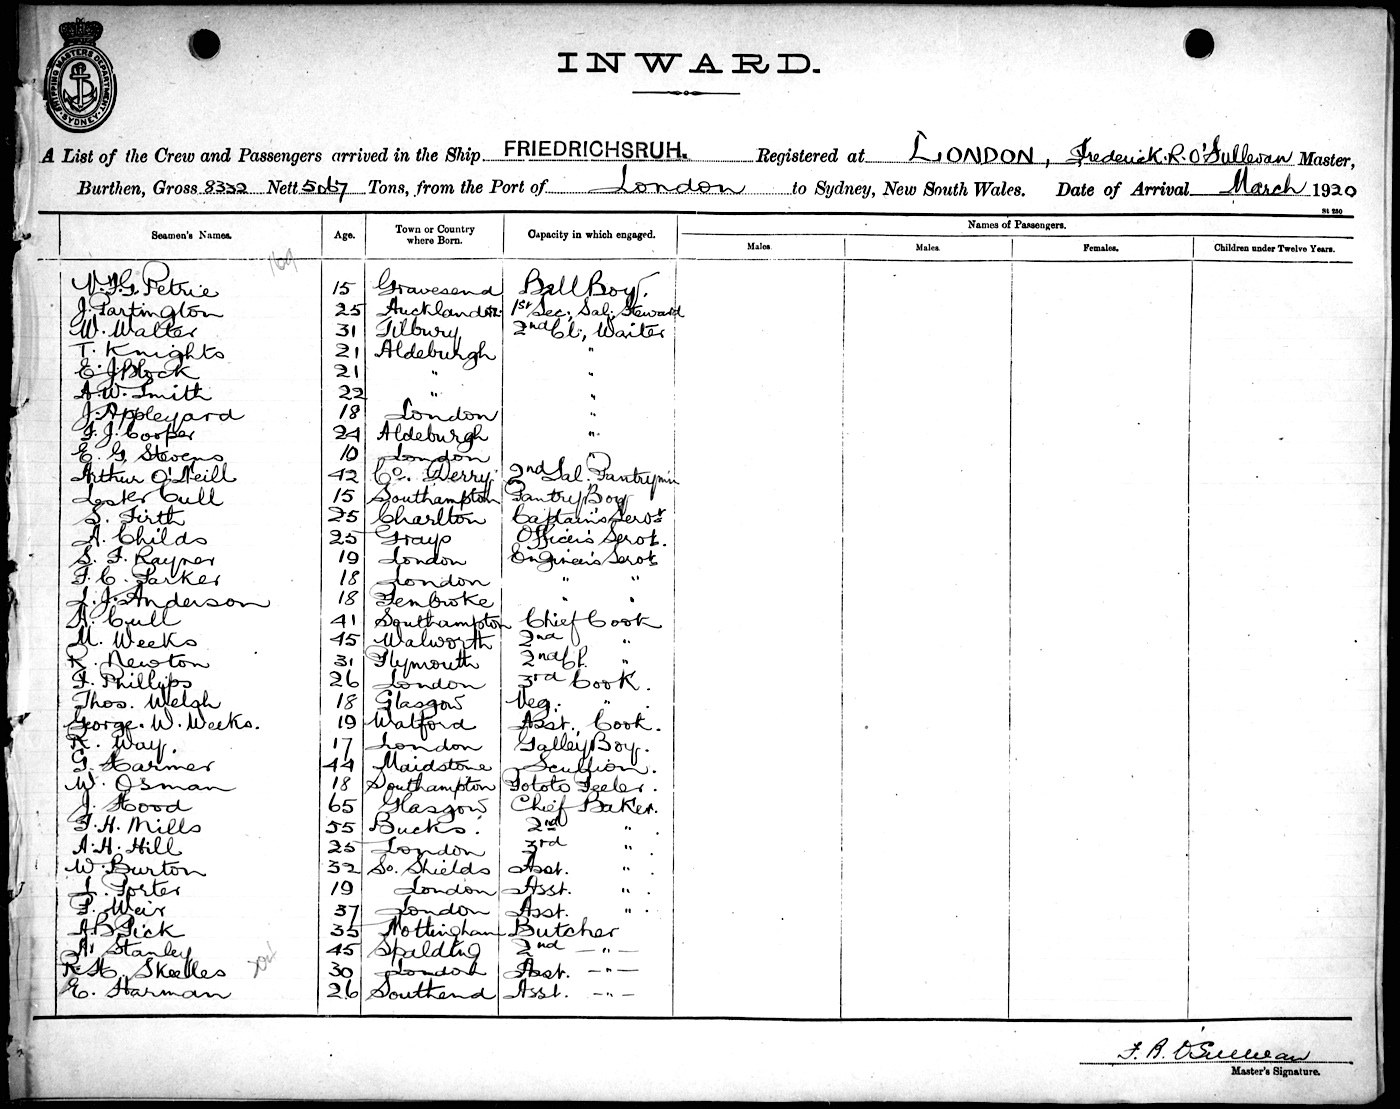 SHIPPING MASTERS DEPARTMENT SYDNEY
INWARD.
A List of the Crew and Passengers arrived in the Ship FRIEDRICHSRUH. Registered at LONDON, Frederick. R. O'Sullevan Master,
Burthen, Gross 8332 Nett 5067 Tons, from the Port of London to Sydney, New South Wales. Date of Arrival March 1920
St 250
Seamen's Names. Age. Town or Country where Born. Capacity in which engaged. Names of Passengers.
Males. Males. Females. Children under Twelve Years.
169
Petrie 15 Gravesend Bell Boy.
J. Partington 25 Auckland 1st Sec. Sal. Steward
W. Walter 31 Tilbury 2nd Cl, Waiter
T. Knights 21 Aldeburgh "
E. J Block 21 " "
A. W. Smith 22 " "
J. Appleyard 18 London "
F. J. Cooper 24 Aldeburgh "
E. G. Stevens London "
Arthur O'Neill 42 Co. Derry 2nd Sal. Pantrymn
Lester Cull 15 Southampton Pantry Boy
S. Firth 25 Charlton Captain's Servt
A. Childs 25 Grays Officer's Servt.
S. F. Rayner 19 London Engineer's Servt
F. C. Parker 18 London " "
L. J. Anderson 18 Pembroke " "
H. Cull 41 Southampton Chief Cook
M. Weeks 45 Walworth 2nd "
R. Newton 31 Plymouth 2nd Cl. "
F. Phillips 26 London 3rd Cook.
Thos. Welsh 18 Glasgow Veg. " .
George. W. Weeks. 19 Watford Asst. Cook.
R. Way. 17 London Galley Boy.
G. Harmer 44 Maidstone Scullion.
W. Osman 18 Southampton Pototo Peeler.
J. Hood 65 Glasgow Chief Baker.
F. H. Mills 55 Bucks. 2nd " .
A. H. Hill 25 London 3rd " .
W. Burton 32 So. Shields Asst. " .
L. Porter 19 London Asst. " .
P. Weir 37 London Asst. " .
A B Pick 35 Nottingham Butcher
A. Stanley 45 Spalding 2nd — " —
R. H. Skeelles 30 London Asst. — " —
E. Harman 26 Southend Asst. — " —
F. R. O'Sullevan
Master's Signature.